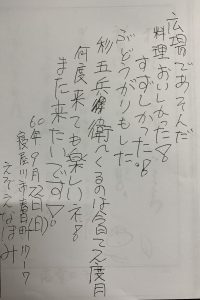 広場であそんだ
料理おいしかった!!
すずしかった。!!
ぶどうがりもした
私五兵衛へくるのは今日で2度月
何度来ても楽しいネ!!
また来たいです!
60年9月22日(日)
寝屋川市